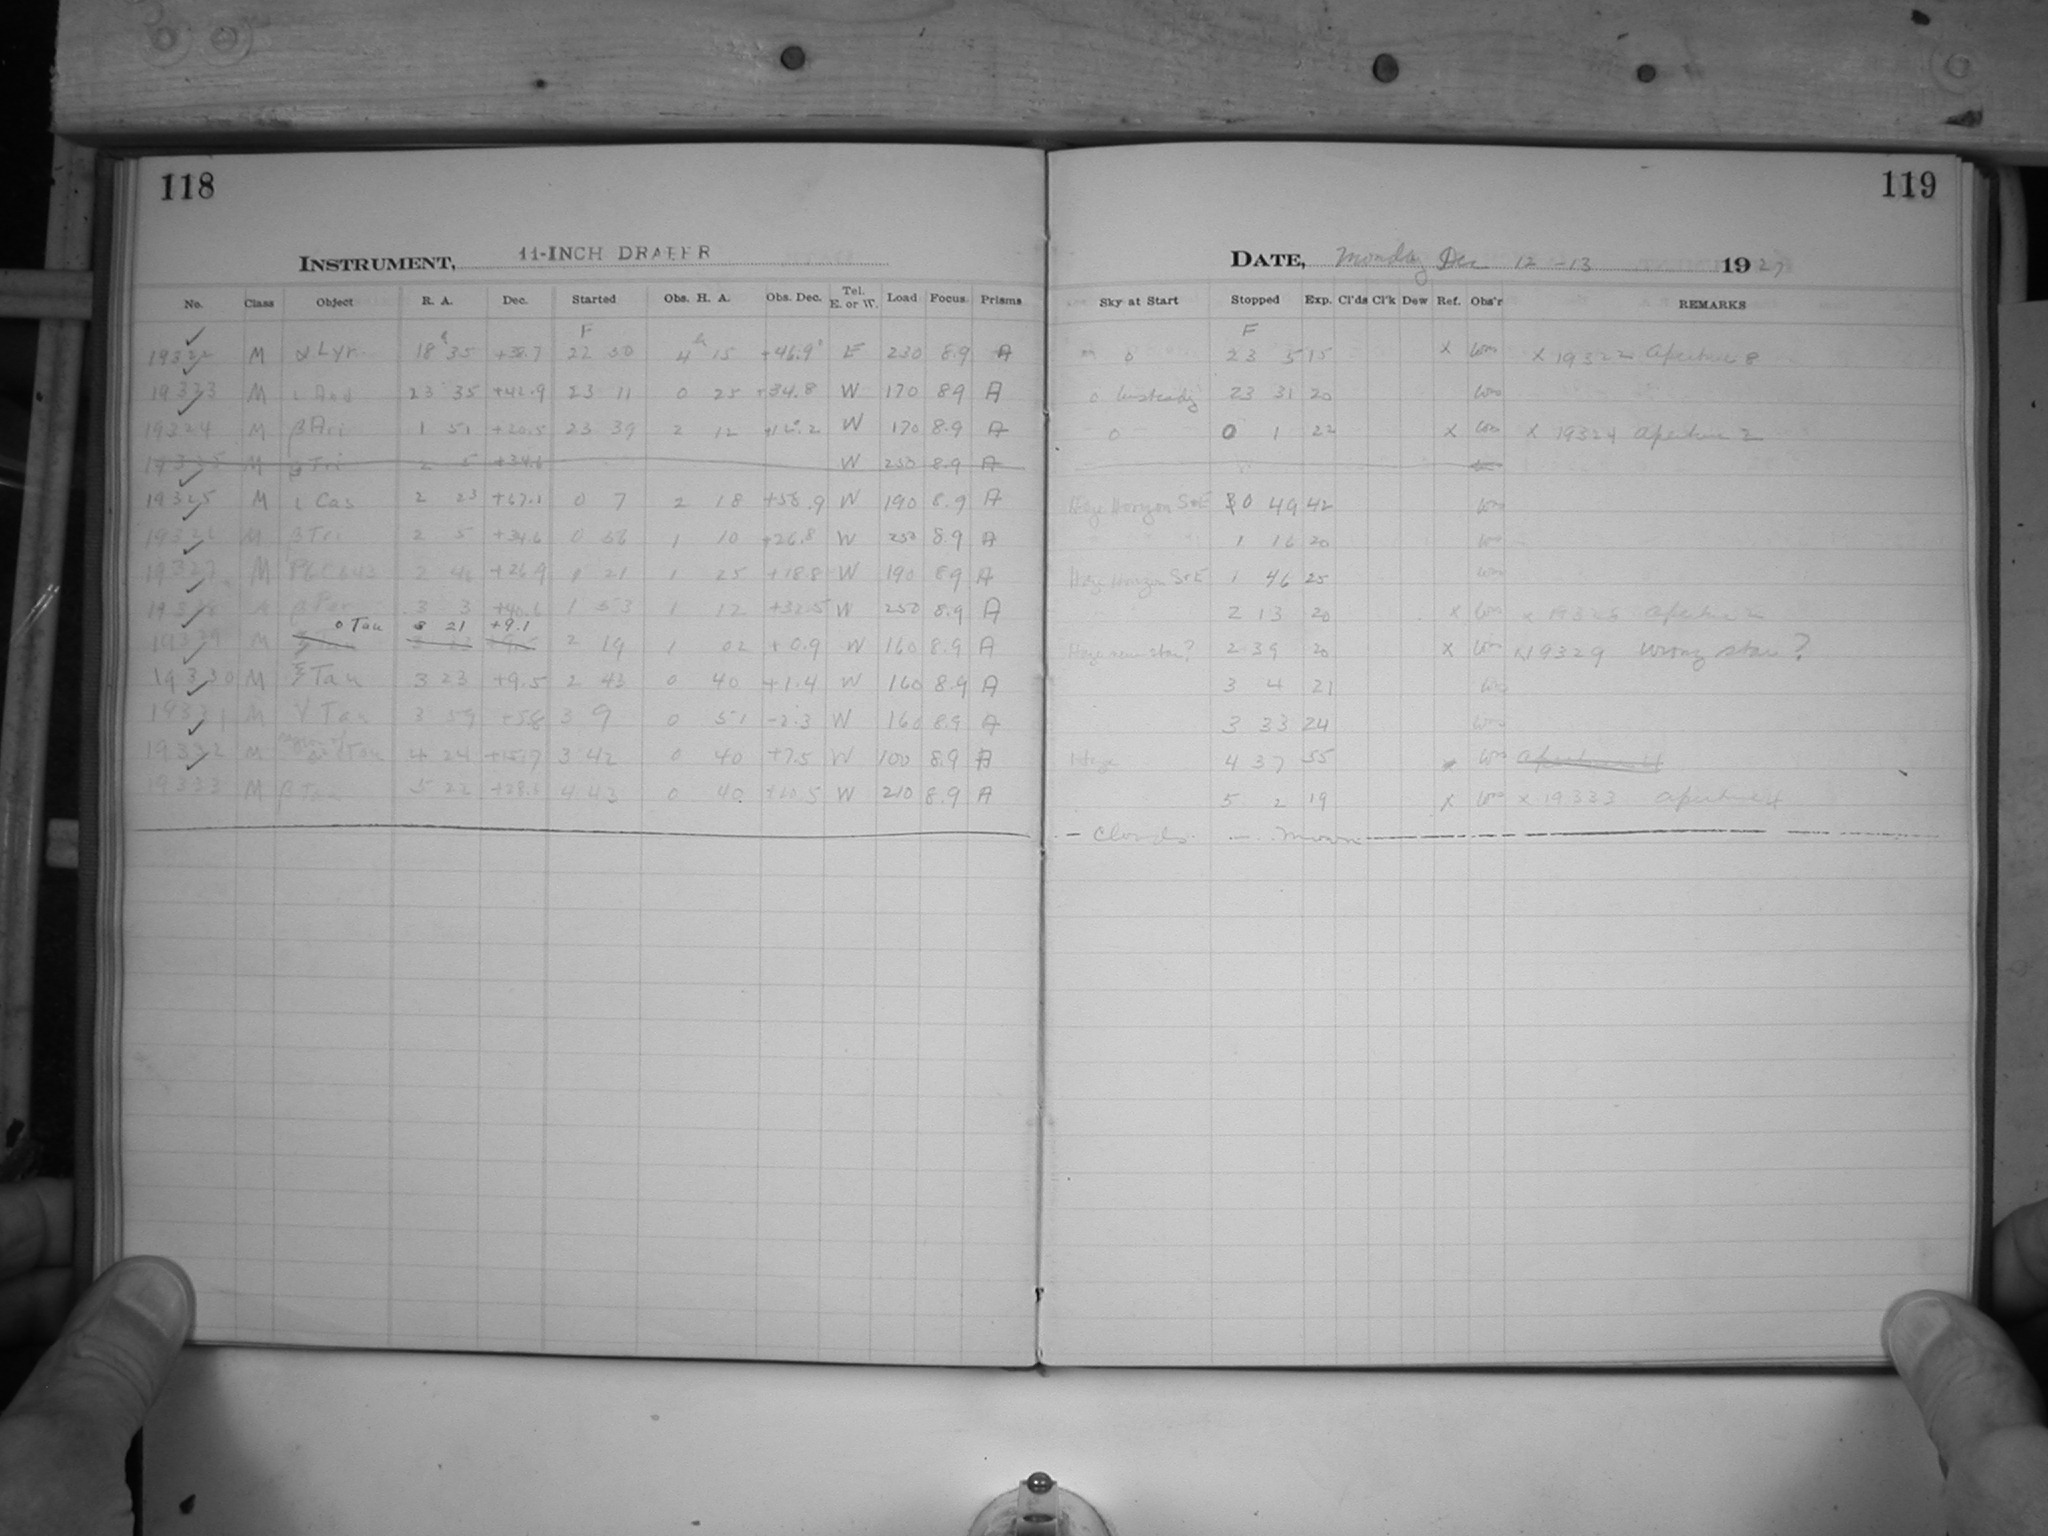 118
INSTRUMENT, 11-INCH DRAPER
No. Class Object R. A. Dec. Started Obs. H. A. Obs. Dec. Tel. E. or W. Load Focus. Prisms
F
19322 M α Lyr. 18h 35 +38.7 22 50 4h 15 +46.9° E 230 8.9 A
19323 M ι And 23 35 +42.9 23 11 0 25 +34.8 W 170 8.9 A
19324 M β Ari 1 51 +20.5 23 39 2 12 W 170 8.9 A
19325 M β Tri 2 5 +34.6 W 250 8.9 A
19325 M ι Cas 2 23 +67.1 0 7 2 18 +58.9 W 190 8.9 A
19326 M β Tri 2 5 +34.6 0 56 1 10 +26.8 W 250 8.9 A
19327 M 2 +26.9 1 21 1 25 +18.8 W 190 8.9 A
19328 β Per 3 3 +40.6 1 53 1 12 +32.5 W 250 8.9 A
ο Tau 3 21 +9.1
19329 M 2 19 1 02 +0.9 W 160 8.9 A
19330 M ξ Tau 3 23 +9.5 2 43 0 40 +1.4 W 160 8.9 A
19331 M γ Tau 3 59 +5.8 3 9 0 51 -2.3 W 160 8.9 A
19332 M region of Tau 4 24 +15.7 3 42 0 40 +7.5 W 100 8.9 A
19333 M β Tau 5 22 +28.5 4 43 0 40 +20.5 W 210 8.9 A
119
DATE, Monday Dec 12-13 1927
Sky at Start Stopped Exp. Cl'ds Cl'k Dew Ref. Obs'r REMARKS
F
0 23 5 15 x x 19322 Aperture 8
0 Unsteady 23 31 20
0 0 1 22 x x 19324 Aperture 2
Haze Horizon S+E 0 49 42
1 16 20
Haze Horizon S+E 1 46 25
2 13 20 x x 19328 Aperture 2
Haze near star? 2 39 20 x x 19329 wrong star?
3 4 21
3 33 24
Haze 4 37 55 x Aperture 4
5 2 19 x x 19333 Aperture 4
Clouds — Moon